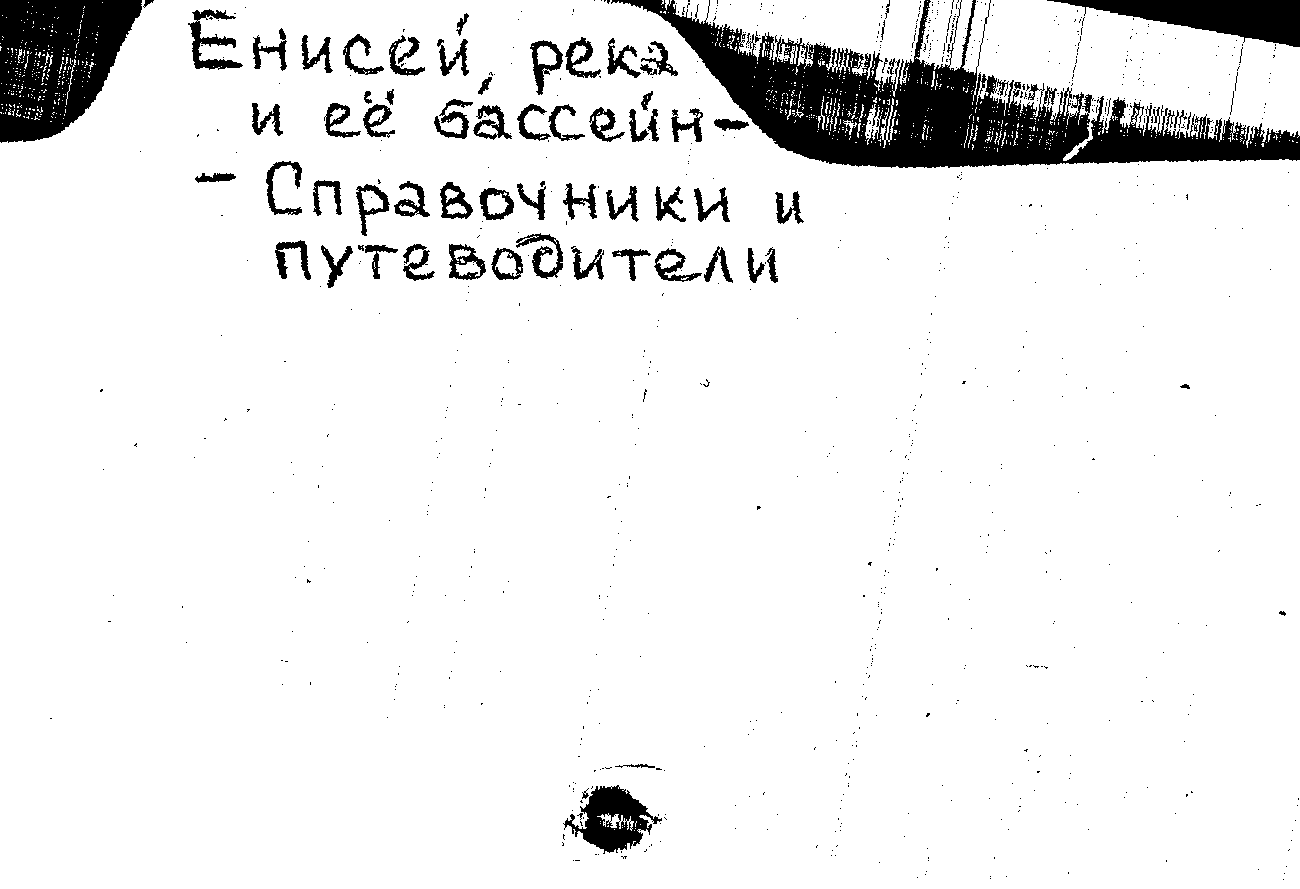 Енисей, река
и её бассейн-
- Справочники и
путеводители